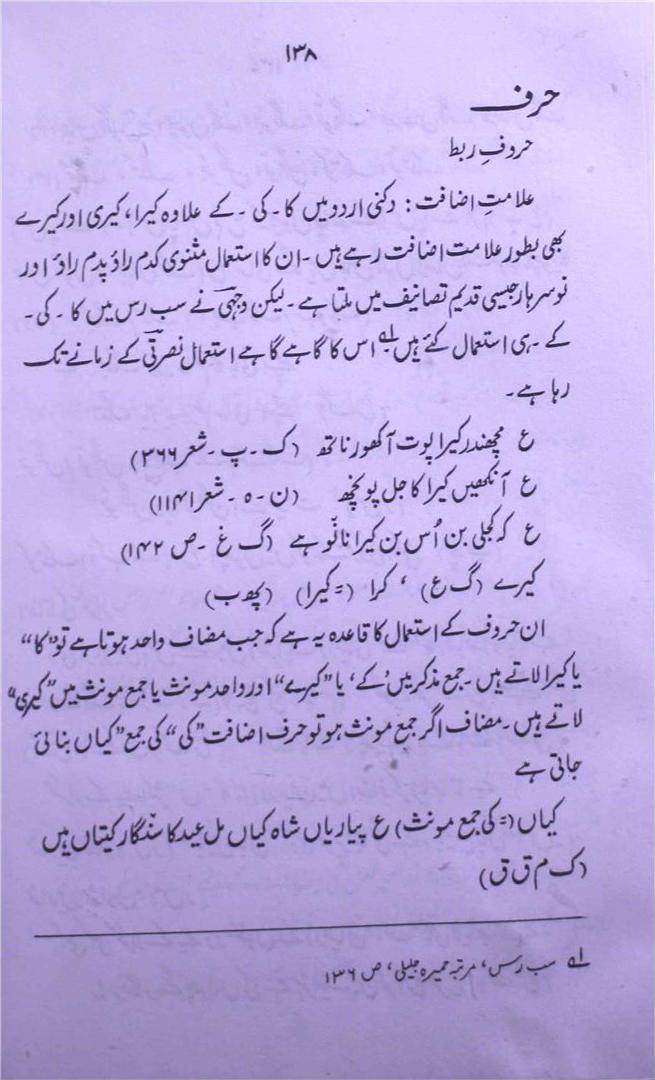 ۱۳۸
حرف
حروفِ ربط
علامتِ اضافت: دکنی اردو میں کا۔ کی۔ کے علاوہ کیرا، کیری اور کیرے
بھی بطور علامت اضافت رہے ہیں۔ ان کا استعمال مثنوی کدم راؤ پدم راؤ اور
نوسرہار جیسی قدیم تصانیف میں ملتا ہے۔ لیکن وجہی نے سب رس میں کا۔ کی۔
کے۔ ہی استعمال کئے ہیں۔ لے اس کا گاہے گاہے استعمال نصرتی کے زمانے تک
رہا ہے۔
ع مچھندر کیرا پوت آکھور ناتھ (ک۔ پ۔ شعر ۳۶۶)
ع آنکھیں کیرا کاجل پونچھ (ن۔ ہ۔ شعر ۱۱۴۱)
ع کہ کجلی بن اُس بن کیرا نانو ہے (گ غ۔ ص ۱۴۲)
کیرے (گ ع) ، کرا (= کیرا) (پھ ب)
ان حروف کے استعمال کا قاعدہ یہ ہے کہ جب مضاف واحد ہوتا ہے تو "کا"
یا کیرا لاتے ہیں۔ جمع مذکر میں 'کے' یا "کیرے" اور واحد مونث یا جمع مونث میں "کیری"
لاتے ہیں۔ مضاف اگر جمع مونث ہو تو حرف اضافت "کی" کی جمع "کیاں بنائی
جاتی ہے
کیاں (= کی جمع مونث) ع پیاریاں شاہ کیاں مل عید کا سنگار کیتاں ہیں
(ک م ق ق)
لے سب رس، مرتبہ حمیرہ جلیلی، ص ۱۳۶